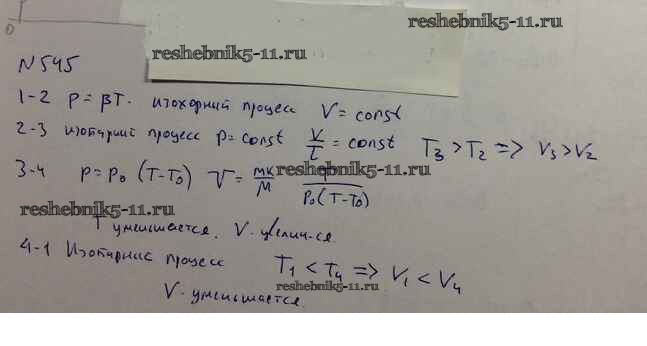 0
reshebnik5-11.ru
reshebnik5-11.ru
N 545
1-2 p = βT. изохорный процесс V = const
2-3 изобарный процесс p = const V/T = const T₃ > T₂ => V₃ > V₂
3-4 p = p₀ (T-T₀) V = mR/M T/p₀(T-T₀)
reshebnik5-11.ru
reshebnik5-11.ru
T уменьшается. V - увелич-ся
4-1 Изобарный процесс T₁ < T₄ => V₁ < V₄
reshebnik5-11.ru
V - уменьшается.